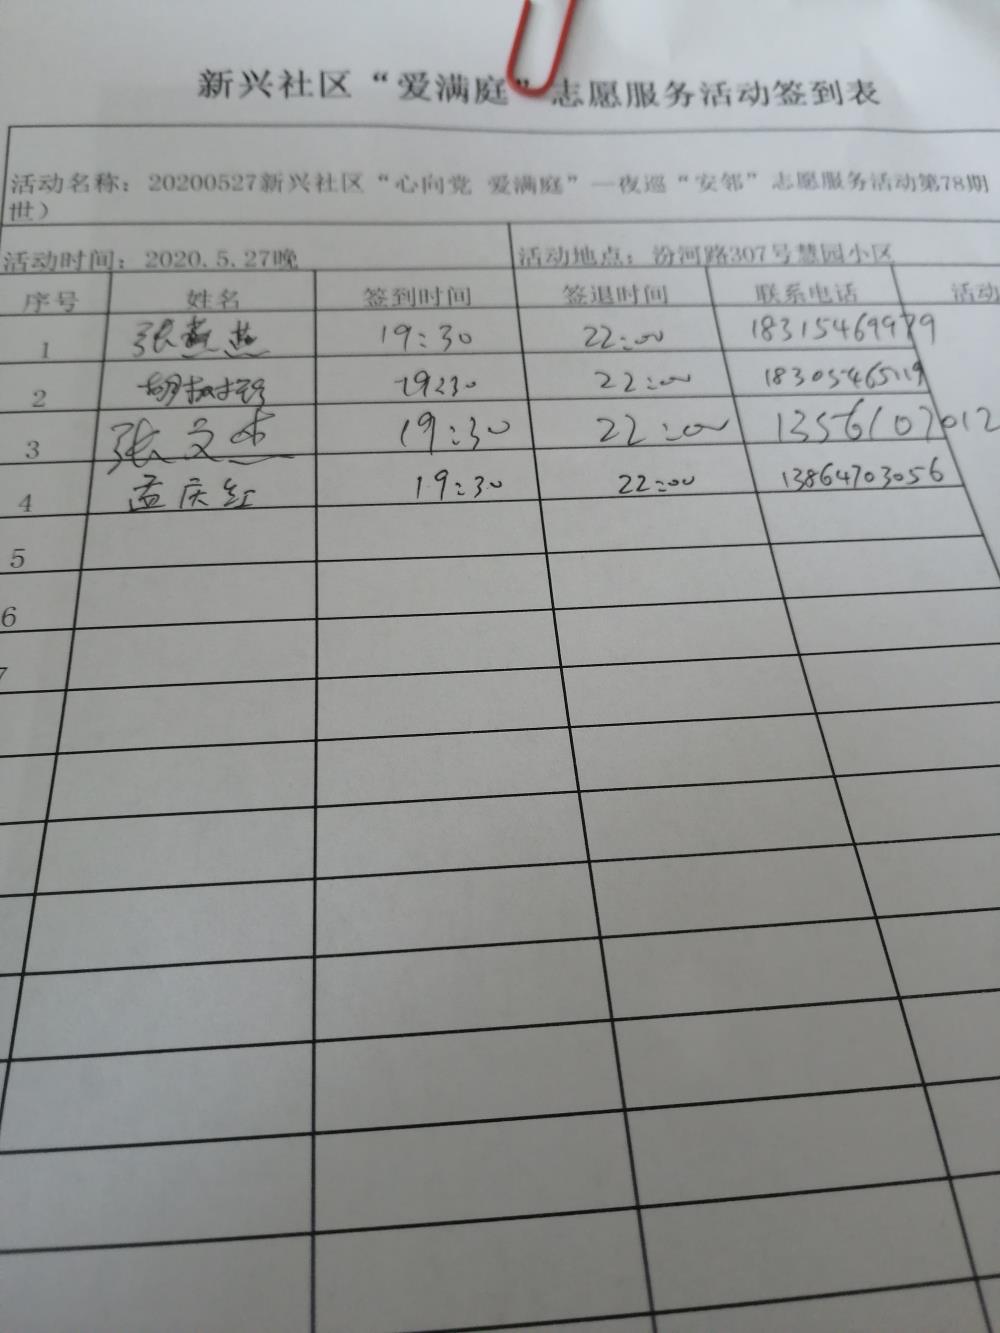 新兴社区“爱满庭”志愿服务活动签到表
活动名称：20200527新兴社区“心向党 爱满庭”—夜巡“安邻”志愿服务活动第78期
世）
活动时间：2020.5.27晚 活动地点：汾河路307号慧园小区
序号 姓名 签到时间 签退时间 联系电话 活动
1 张燕燕 19:30 22:00 18315469979
2 19:30 22:00 18305465119
3 张文杰 19:30 22:00 13561072012
4 孟庆红 19:30 22:00 13864703056
5
6
7